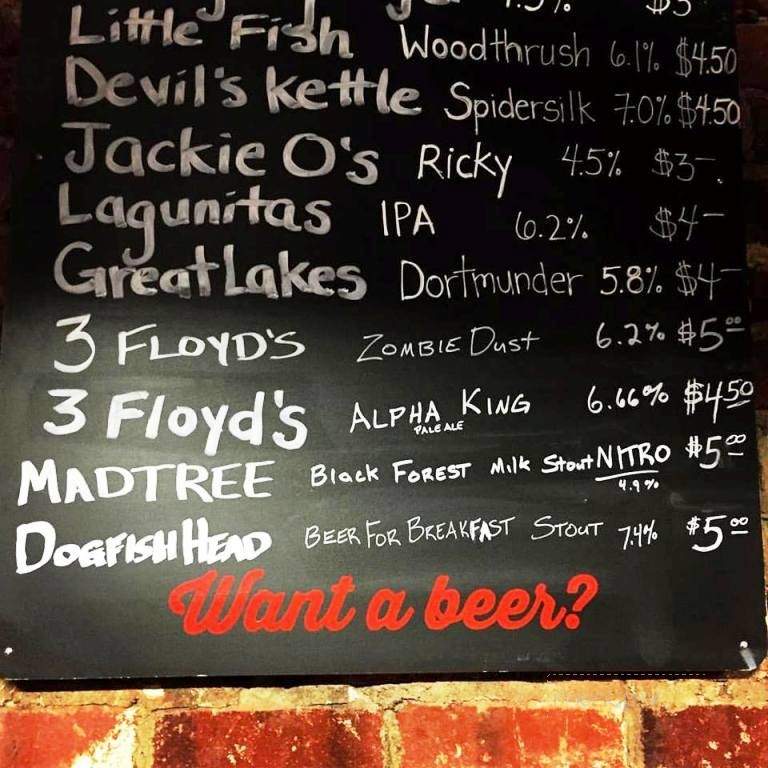 Little Fish Woodthrush 6.1% $4.50
Devil's kettle Spidersilk 7.0% $4.50
Jackie O's Ricky 4.5% $3-
Lagunitas IPA 6.2% $4-
Great Lakes Dortmunder 5.8% $4-
3 FLOYD'S ZOMBIE DUST 6.2% $5.00
3 Floyd's ALPHA KING 6.66% $4.50
PALE ALE
MADTREE Black FOREST Milk Stout NITRO $5.00
4.9%
DOGFISH HEAD BEER FOR BREAKFAST STOUT 7.4% $5.00
Want a beer?